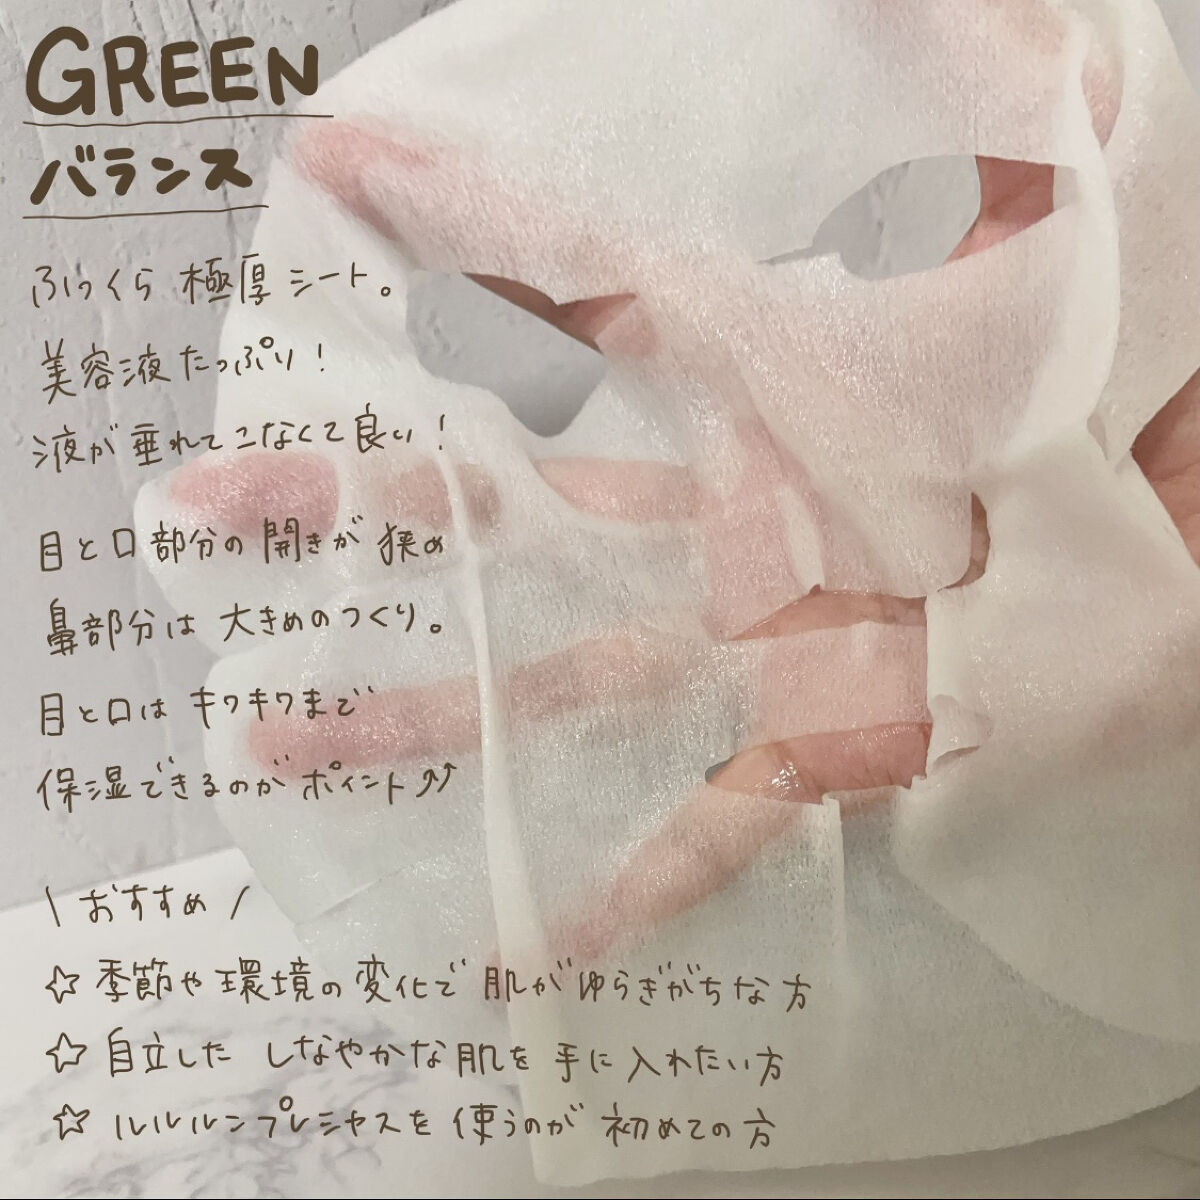 GREEN
バランス
ふっくら 極厚シート。
美容液たっぷり！
液が垂れてこなくて良い！
目と口部分の開きが狭め
鼻部分は大きめのつくり。
目と口はキワキワまで
保湿できるのがポイント⤴⤴
\ おすすめ /
☆ 季節や環境の変化で肌がゆらぎがちな方
☆ 自立した しなやかな肌を手に入れたい方
☆ ルルルンプレシャスを使うのが初めての方